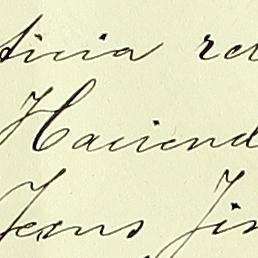 ticia re
Haciend
Jesus Jim